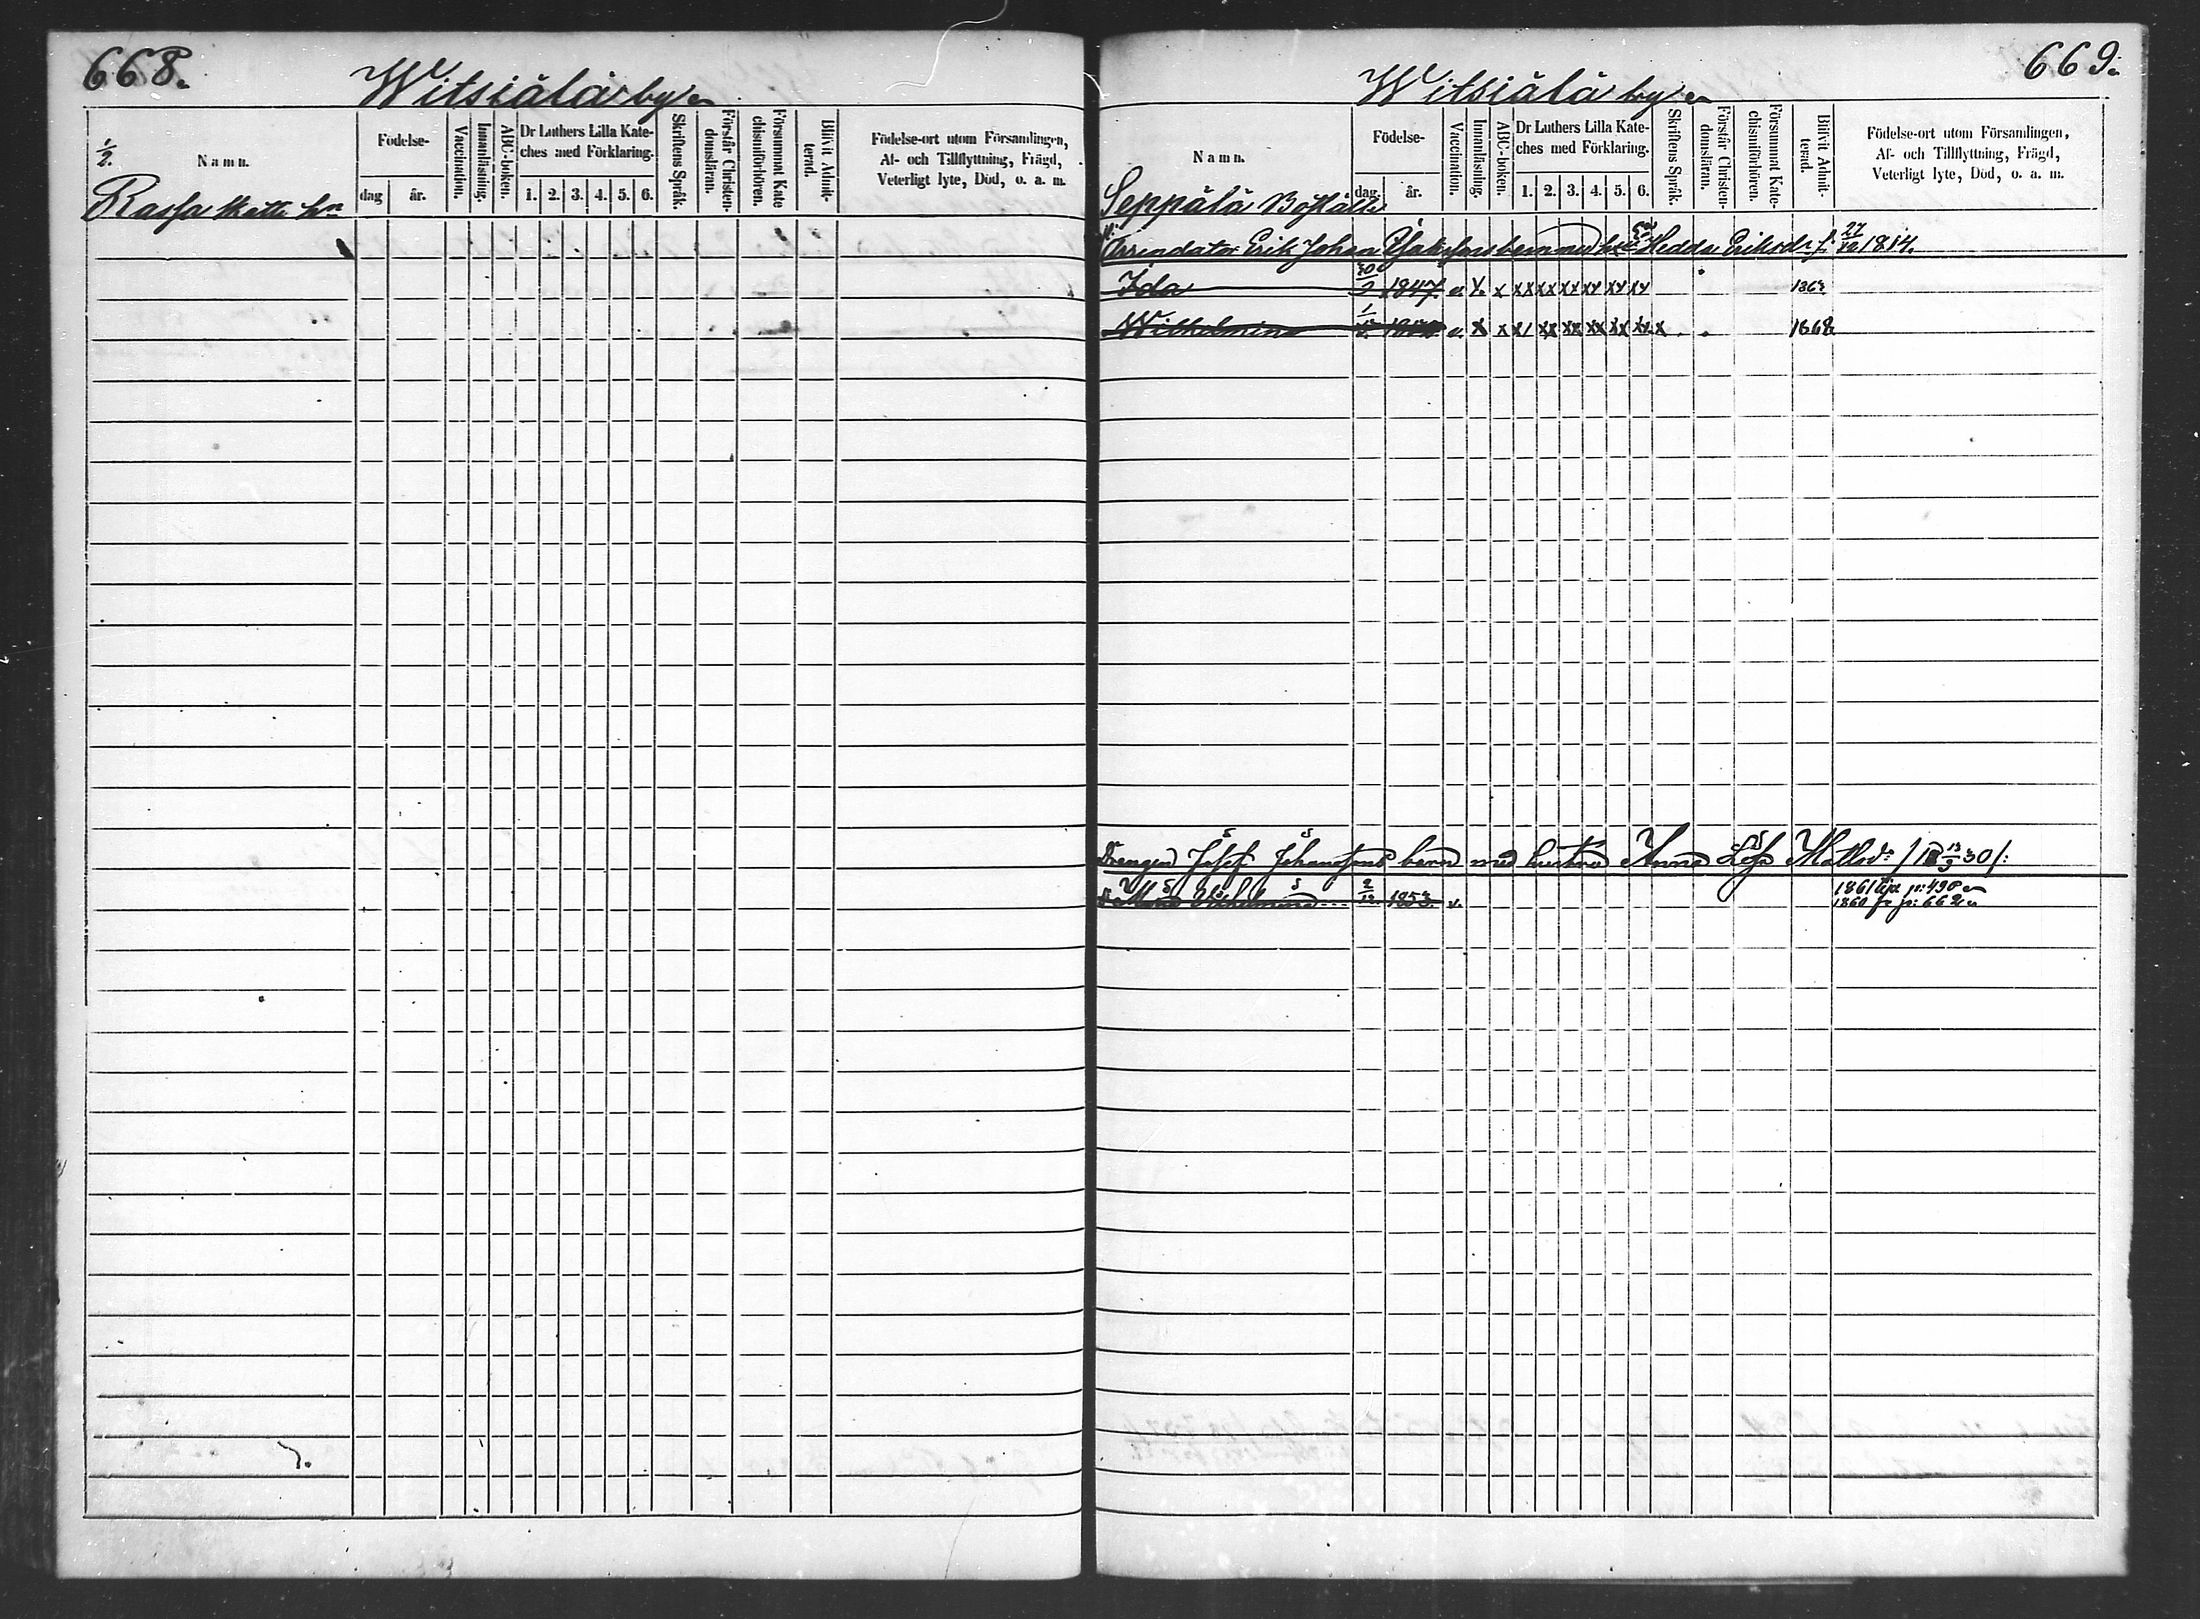 668.
Witsiälä by
½.
Namn.
Födelse-
dag
år.
Vaccination.
Innanläsning.
ABC-boken.
Dr Luthers Lilla Kate-
ches med Förklaring.
1. 2. 3. 4. 5. 6.
Skriftens Språk.
Förstår Christen-
domsläran.
Försummat Kate
chismiförhören.
Blifvit Admit-
terad.
Födelse-ort utom Församlingen,
Af- och Tillflyttning, Frägd,
Veterligt lyte, Död, o. a. m.
Rassa Skatte hn
669.
Witsiälä by
Namn.
Födelse-
dag.
år.
Vaccination.
Innanläsning.
ABC-boken.
Dr Luthers Lilla Kate-
ches med Förklaring.
1. 2. 3. 4. 5. 6.
Skriftens Språk.
Förstår Christen-
domsläran.
Försummat Kate-
chismiförhören.
Blifvit Admit-
terad.
Födelse-ort utom Församlingen,
Af- och Tillflyttning, Frägd,
Veterligt lyte, Död, o. a. m.
Seppälä Boställe
Arrendator Erik Johan barn med Hedda Eriksdr f. 27/12 1814.
Ida 1847 v. x x xx xx xx xx xx xx
Wilhelmina v. x x x/ xx xx xx xx xx x 1868
Drengen Josef Johanssons barn med hustrun Anna Lisa Mattsdr /18 13/9 30/:
Wilhelmina 2/12 1853 v. 1861 p: 490
1860 fr p: 662